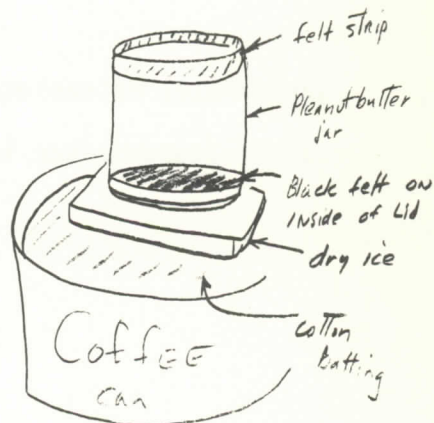 felt strip
Peanutbutter
jar
Black felt on
inside of Lid
dry ice
cotton
Batting
Coffee
can